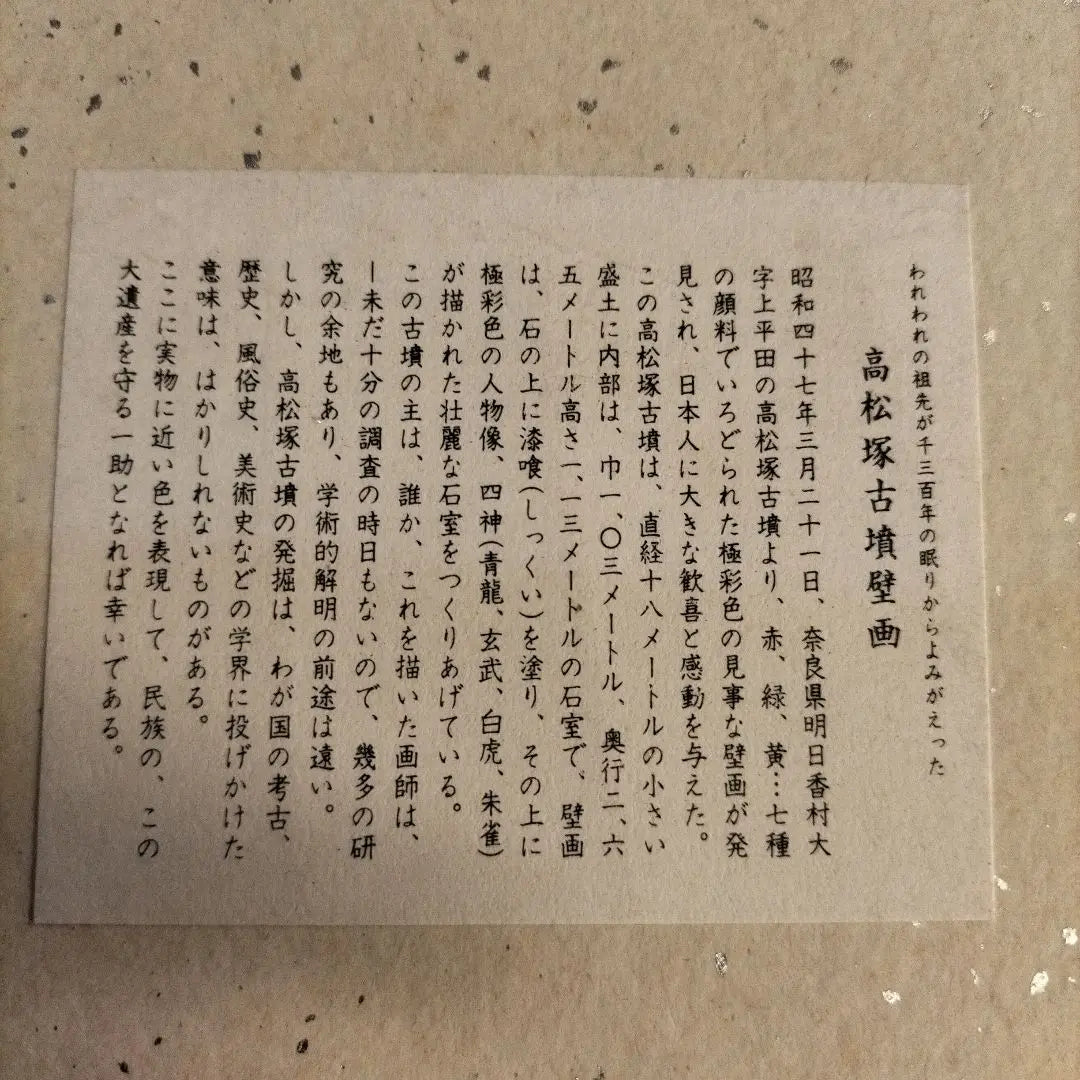 われわれの祖先が千三百年の眠りからよみがえった
高松塚古墳壁画
昭和四十七年三月二十一日、奈良県明日香村大
字上平田の高松塚古墳より、赤、緑、黄…七種
の顔料でいろどられた極彩色の見事な壁画が発
見され、日本人に大きな歓喜と感動を与えた。
この高松塚古墳は、直経十八メートルの小さい
盛土に内部は、巾一、〇三メートル、奥行二、六
五メートル高さ一、一三メードルの石室で、壁画
は、石の上に漆喰(しっくい)を塗り、その上に
極彩色の人物像、四神(青龍、玄武、白虎、朱雀)
が描かれた壮麗な石室をつくりあげている。
この古墳の主は、誰か、これを描いた画師は、
ー未だ十分の調査の時日もないので、幾多の研
究の余地もあり、学術的解明の前途は遠い。
しかし、高松塚古墳の発掘は、わが国の考古、
歴史、風俗史、美術史などの学界に投げかけた
意味は、はかりしれないものがある。
ここに実物に近い色を表現して、民族の、この
大遺産を守る一助となれば幸いである。